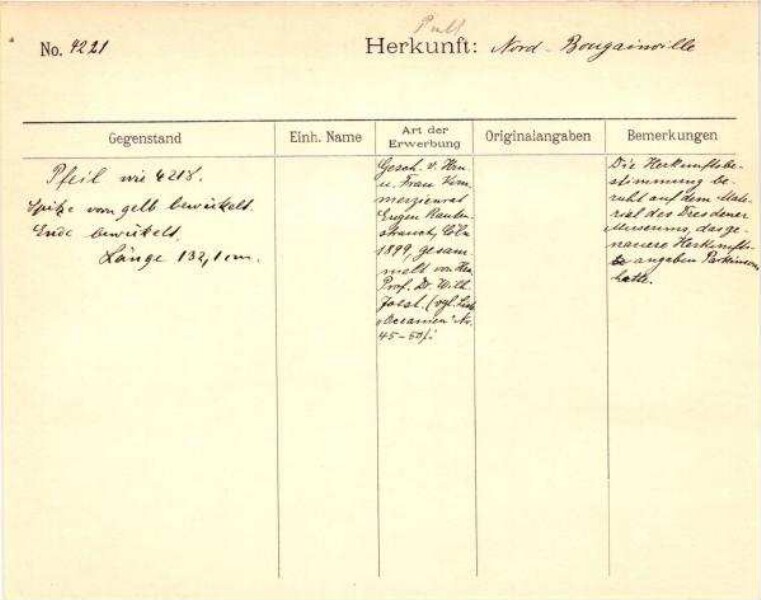 No. 4221
Herkunft: Nord-Bougainville
Gegenstand
Einh. Name
Art der Erwerbung
Originalangaben
Bemerkungen
Pfeil wie 4218.
Spitze vorn gelb bewickelt.
Ende bewickelt.
Länge 132,1 cm.
Gesch. v. Hrn
u. Frau Kom-
merzienrat
Eugen Rauten-
strauch, Cöln
1899, gesam-
melt von Hrn
Prof. Dr. Wilh.
Joest. (vgl. Liste
"Oceanien" No.
45-50).
Die Herkunftsbe-
stimmung be-
ruht auf dem Mate-
rial des Dresdener
Museums, das ge-
nauere Herkunfts-
angaben Parkinsons
hatte.